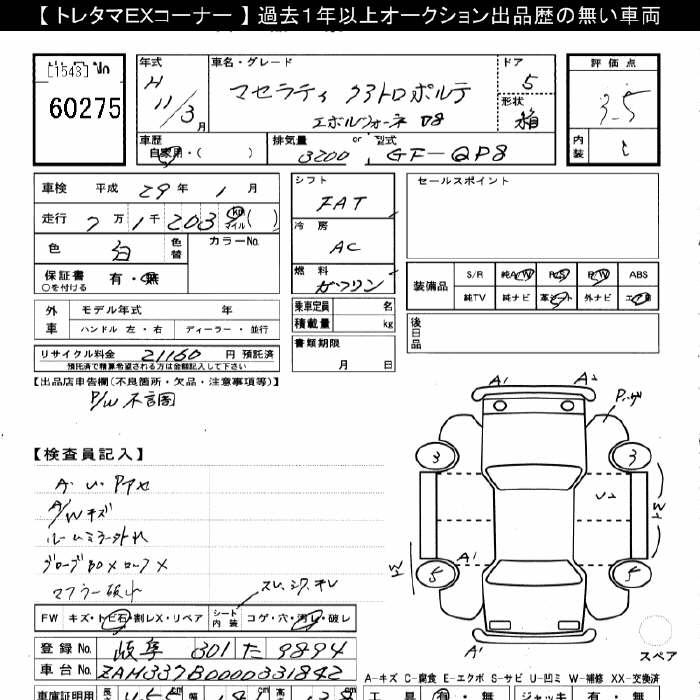 【 トレタマEXコーナー 】 過去1年以上オークション出品歴の無い車両
[1543]
60275
年式 車名・グレード ドア 評価点
H 11/3月 マセラティ クアトロポルテ 5 3.5
エボルツォーネ V8 形状 箱
車歴 排気量 or 型式 内装 C
自家用・( ) 3200 GF-QP8
車検 平成 29年 1月
走行 7万1千203 km マイル ( )
色 白 色替 カラーNo.
保証書 有・無
○を付ける
外車 モデル年式 年
ハンドル 左・右 ディーラー・並行
リサイクル料金 21160 円 預託済
預託済で精算希望される方は金額記入して下さい
シフト
FAT
冷房
AC
燃料
ガソリン
乗車定員 名
積載量 kg
書類期限
月 日
セールスポイント
装備品 S/R 純AW PS PW ABS
純TV 純ナビ 革シート 外ナビ エア
後日品
【出品店申告欄(不良箇所・欠品・注意事項等)】
P/W 不言
【検査員記入】
A・U・Pアセ
A/Wキズ
ルームミラー外れ
グローブBOX ロックX
マフラー
スレ、シワ、キレ
FW キズ・トビ石・割レX・リペア シート内装 コゲ・穴・汚レ・破レ
登録No. 岐阜 301 た 9894
車台No. ZAM337B0000331842
A1 A2
3 3
U2
W1
A1
5 5
W1
A1
スペア
A-キズ C-腐食 E-エクボ S-サビ U-凹ミ W-補修 XX-交換済
車庫証明用
工具 有・無 ジャッキ 有・無